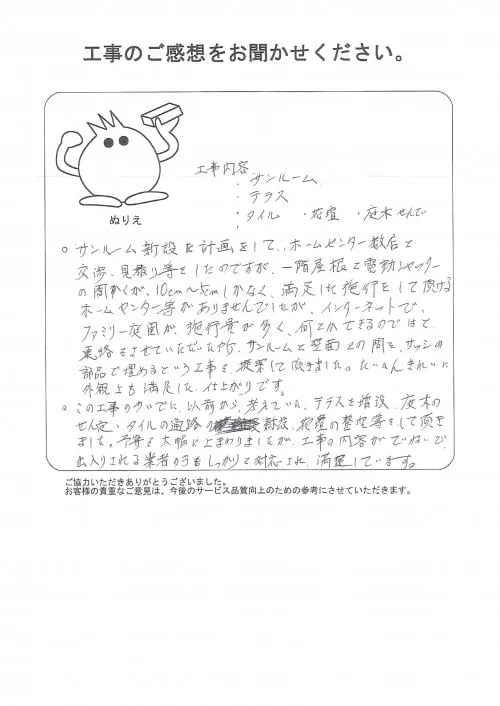 工事のご感想をお聞かせください。
ぬりえ
工事内容
・サンルーム
・テラス
・タイル ・花壇 ・庭木せんてい
○サンルーム新設を計画をして、ホームセンター数店と
交渉、見積り等をしたのですが、一階屋根と電動シャッター
の間かくが、10cm~5cmしかなく、満足した施行をして頂ける
ホームセンター等がありませんでしたが、インターネットで、
ファミリー庭園が、施行量が多く、何とかできるのではと、
連絡をさせていただいた所、サンルームと壁面との間を、サッシの
部品で埋めるという工事を提案して頂きました。たいへんきれいに
外観上も満足した仕上がりです。
○この工事のついでに、以前から、考えていた、テラスを増設、庭木の
せん定・タイルの通路の新設、花壇の整地等をして頂き
ました。予算を大幅に上まわりましたが、工事の内容がていねいで、
出入りされる業者の方もしっかりと対応され、満足しています。
ご協力いただきありがとうございました。
お客様の貴重なご意見は、今後のサービス品質向上のための参考にさせていただきます。